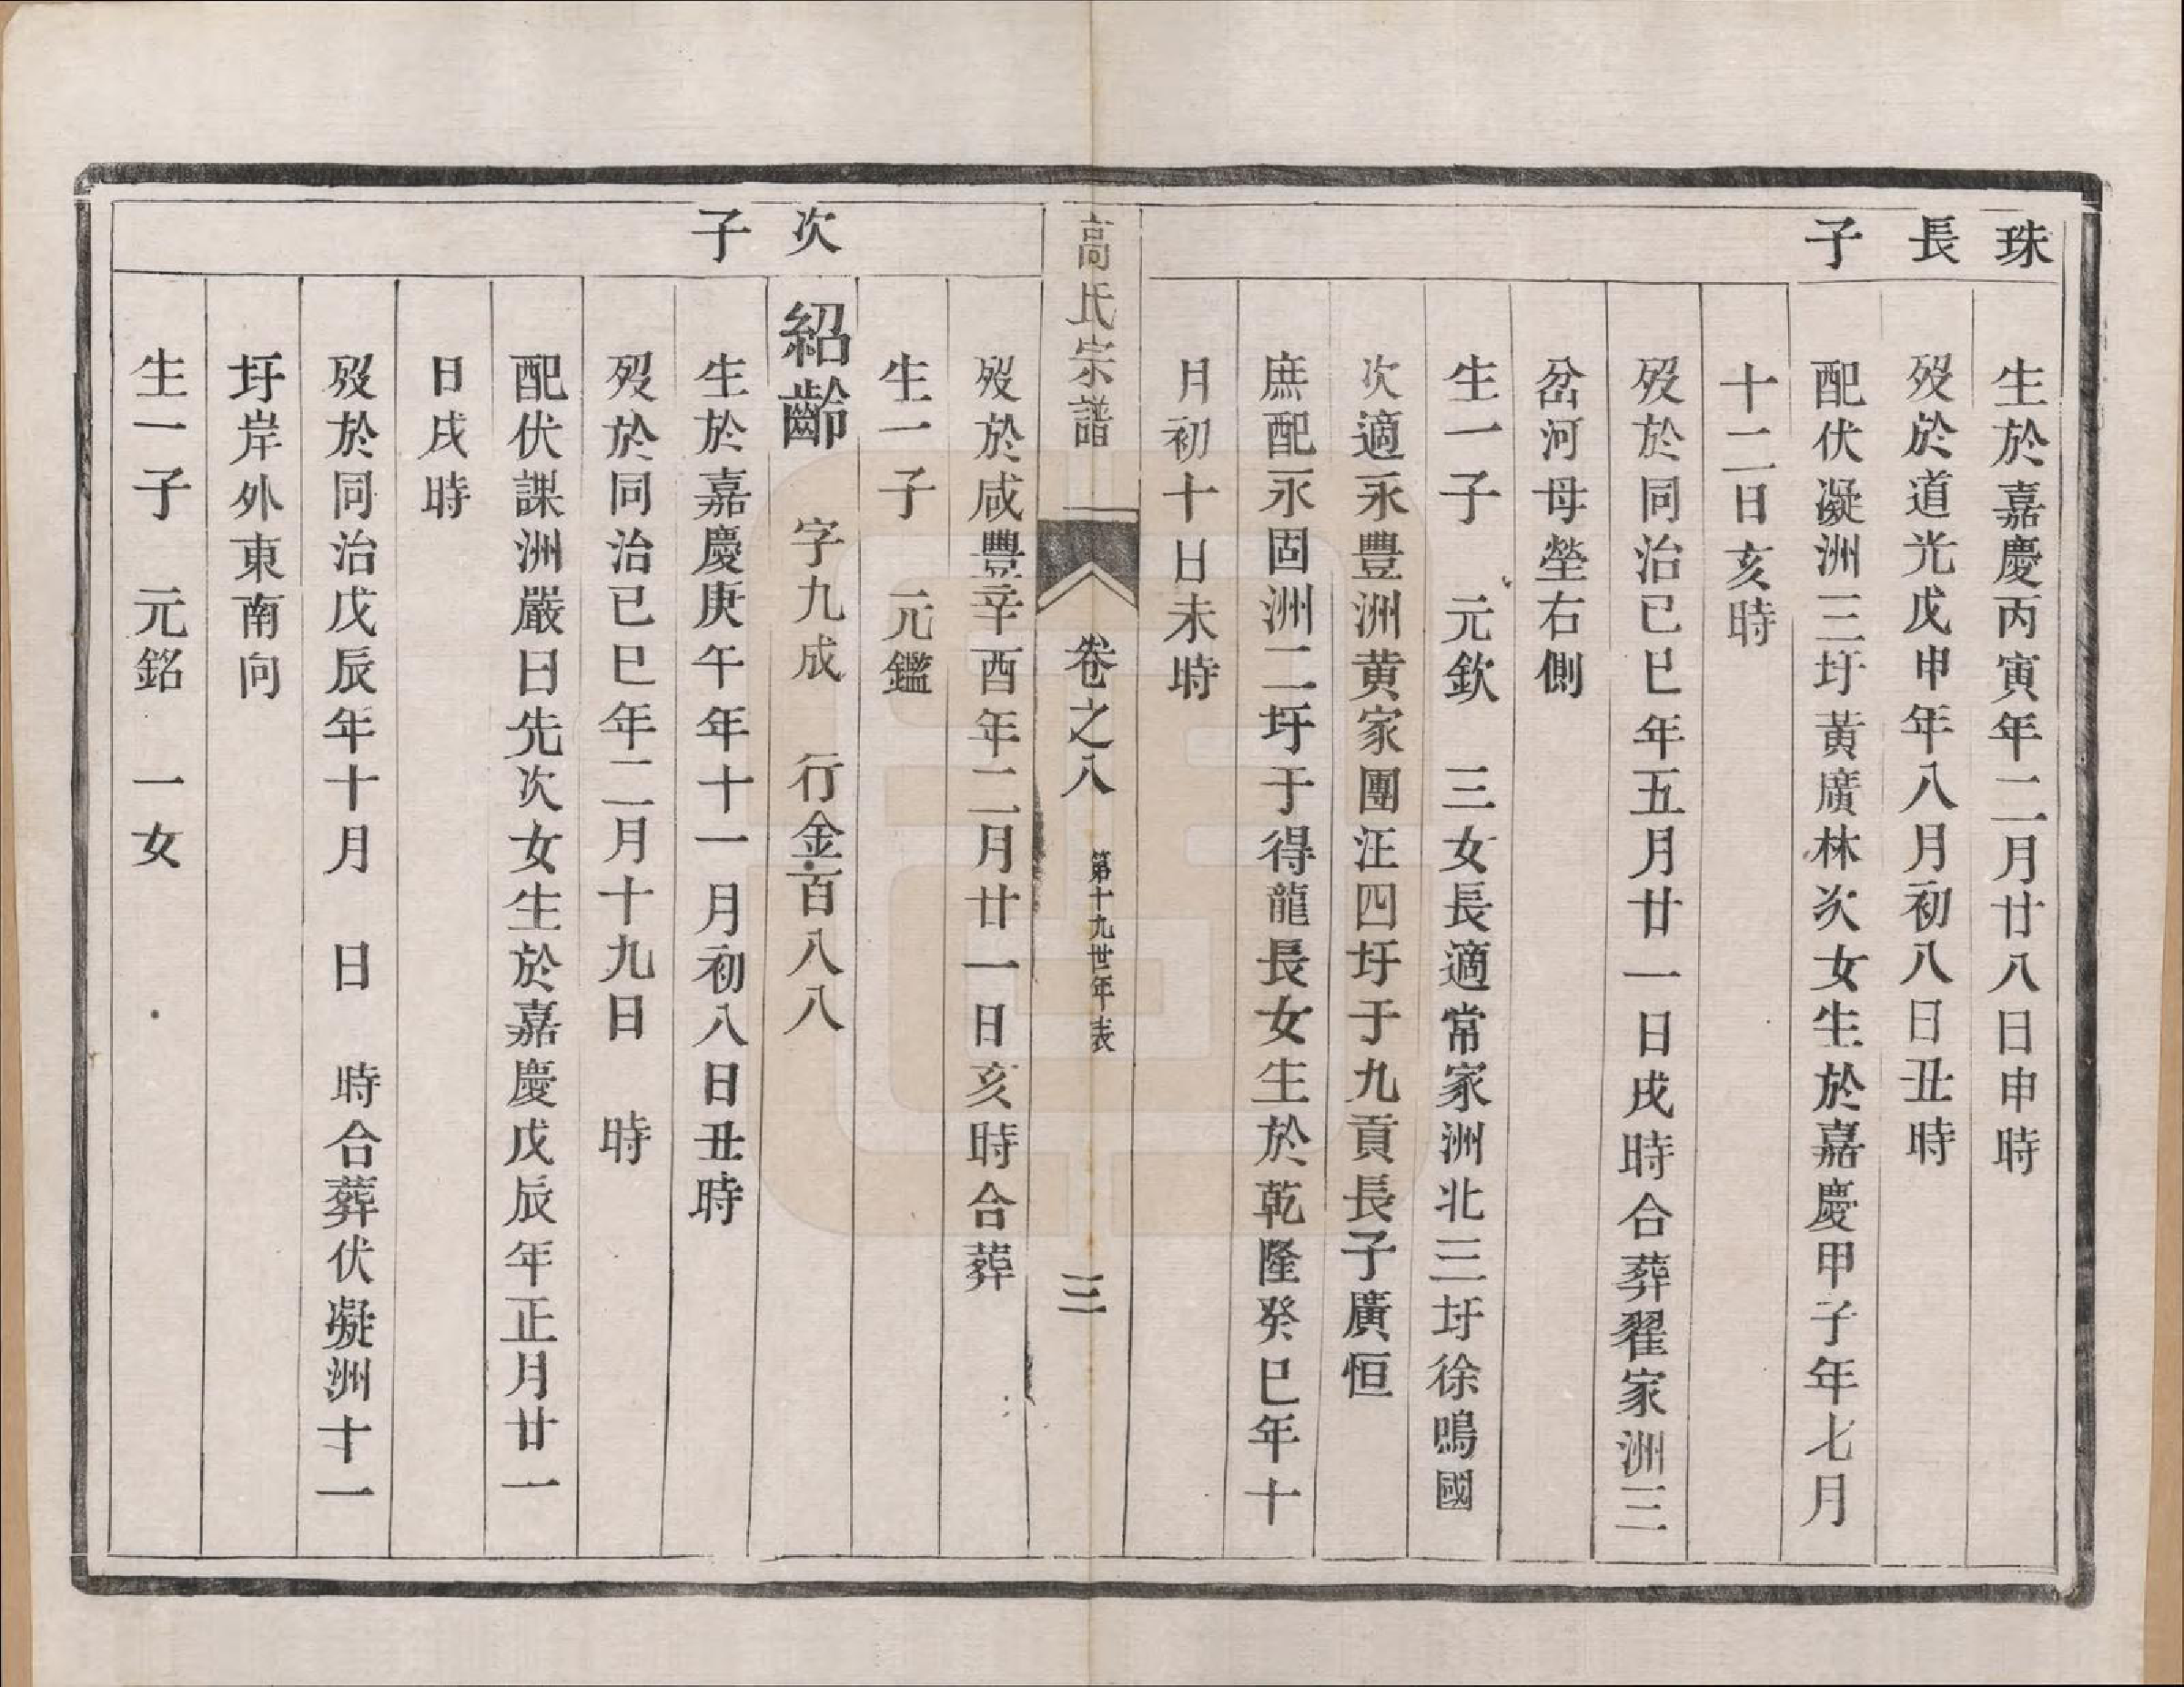 珠長子
生於嘉慶丙寅年二月廿八日申時
歿於道光戊申年八月初八日丑時
配伏凝洲三圩黃廣林次女生於嘉慶甲子年七月
十二日亥時
歿於同治己巳年五月廿一日戌時合葬翟家洲三
岔河母塋右側
生一子　元欽　三女長適常家洲北三圩徐鳴國
次適永豐洲黃家團汪四圩于九貢長子廣恒
庶配永固洲二圩于得龍長女生於乾隆癸巳年十
月初十日未時
高氏宗譜　卷之八　第十九世年表　三
歿於咸豐辛酉年二月廿一日亥時合葬
生一子　元鑑
次子
紹齡　字九成　行金百八八
生於嘉慶庚午年十一月初八日丑時
歿於同治己巳年二月十九日　時
配伏謀洲嚴日先次女生於嘉慶戊辰年正月廿一
日戌時
歿於同治戊辰年十月　日　時合葬伏凝洲十一
圩岸外東南向
生一子　元銘　一女